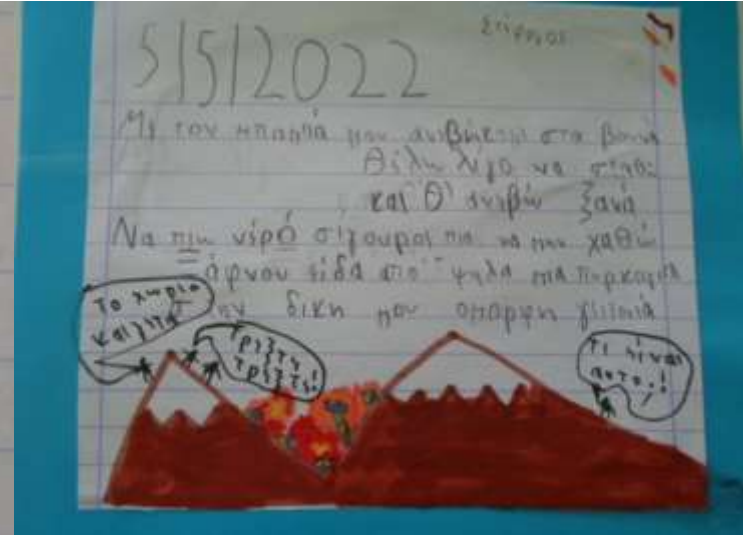 5/5/2022
Με τον μπαμπά μου ανεβήκαμε στα βουνά
Θέλη λίγο να σταθ
και Θ' ανεβώ ξανά
Να πιη νερό σίγουρος πια να μην χαθώ
άρνου είδα από ψηλά μια πυρκαγια
την δικη μου ομορφη γιτονιά
Το χωριο
καίγεται
τρεξτε
τρεξτε!
Τι είναι
αυτο;!